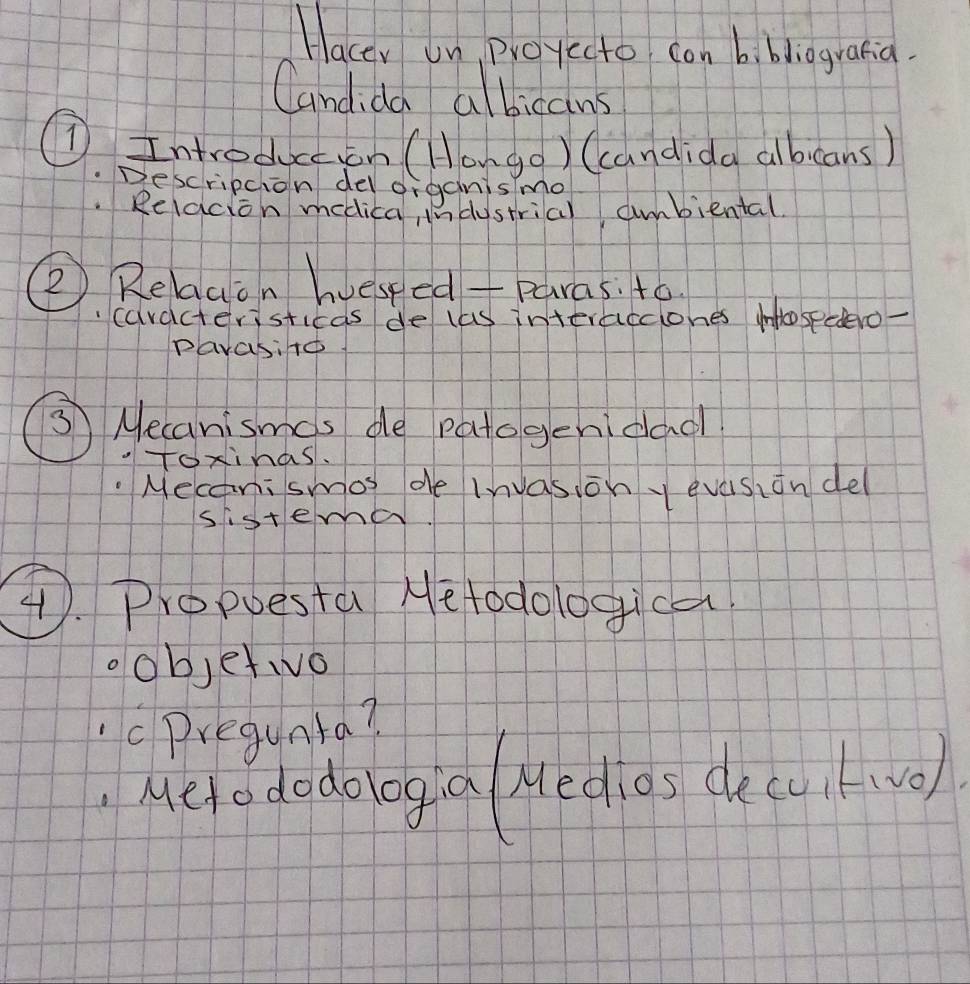 Hacer un proyecto con bibliografia.
Candida albicans
① Introducción (Hongo) (candida albicans)
. Descripción del organismo
. Relación medica, industrial, ambiental.
② Relación huesped - parasito.
. caracteristicas de las interacciones hospedero-
parasito.
③ Mecanismos de patogenidad.
. Toxinas.
. Mecanismos de invasión y evasión del
sistema.
④. Propuesta Métodologica.
. objetivo
. ¿Pregunta?
. Metododologia (Medios de cultivo).